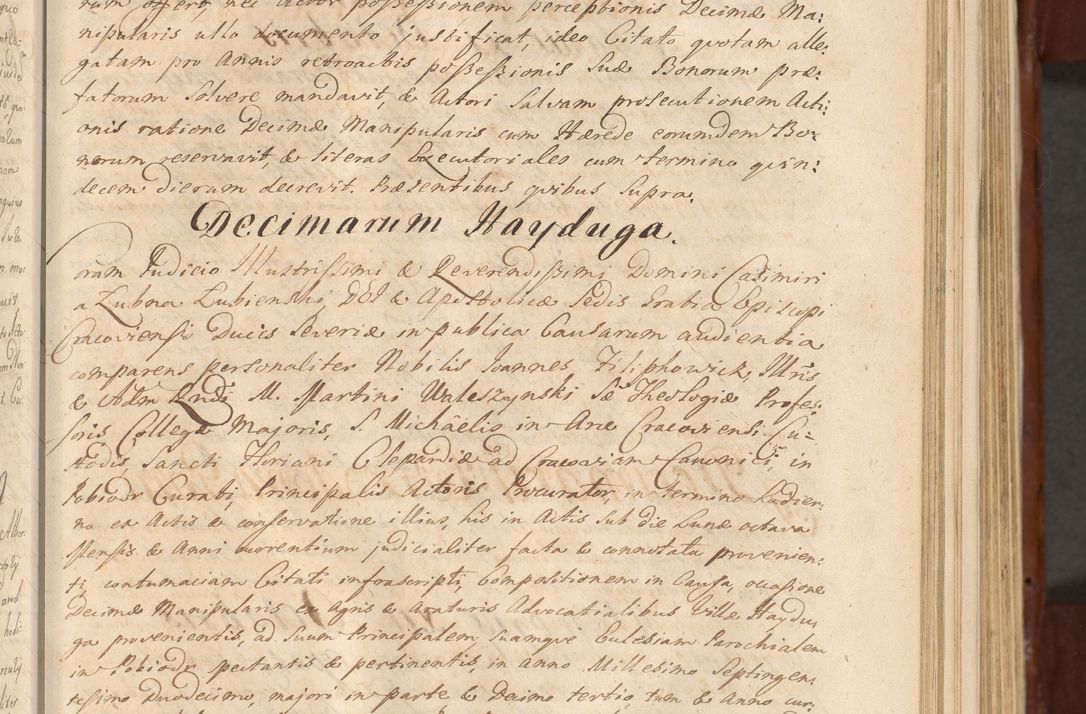 rum offert, nec Actor possessionem perceptionis Decimæ Ma:
nipularis ullo documento justificat, ideo Citato quotam alle,
gatam pro Annis retroactis possessionis suæ Bonorum præ:
fatorum solvere mandavit, & Actori salvam prosecutionem Acti:
onis ratione Decimæ Manipularis cum Hærede eorumdem Bo:
norum reservavit, & literas Executoriales cum termino quin:
decem dierum decrevit. Præsentibus quibus supra.
Decimarum Hayduga.
Coram Judicio Illustrissimi & Reverendissimi Domini Casimiri
a Lubna Lubienski, DEI & Apostolicæ Sedis Gratia Episcopi
Cracoviensis Ducis Severiæ in publica Causarum audientia
comparens personaliter Nobilis Joannes Filiphowicz, Illris
& Adm Rndi M. Martini Waleszynski Sæ Theologiæ Profes,
soris Collegæ Majoris, S. Michaëlis in Arce Cracoviensi Cu:
stodis, Sancti Floriani Clepardiæ ad Cracoviam Canonici, in
Pobiodr Curati, Principalis Actoris Procurator, in termino hodier,
no ex Actis & conservatione illius, his in Actis sub die Lunæ octava
Mensis & Anni currentium judicialiter facta & connotata provenien:
ti, contumaciam Citati infrascripti, Compositionem in Causa, occasione
Decimæ Manipularis ex agris & araturis Advocatialibus Villæ Haydu,
ga provenientis, ad suum Principalem suamque Ecclesiam Parochialem
in Pobiodr spectantis & pertinentis, in anno Millesimo Septingen,
tesimo Duodecimo, majori in parte & Decimo tertio, tum & Anno cur,